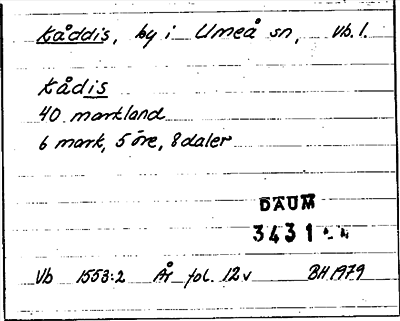 Kåddis, by i Umeå sn, Vb. l.
Kådis
40 markland
6 mark, 5 öre, 8 daler
DAUM
3431
Vb 1553:2 År fol. 12v BH 1979